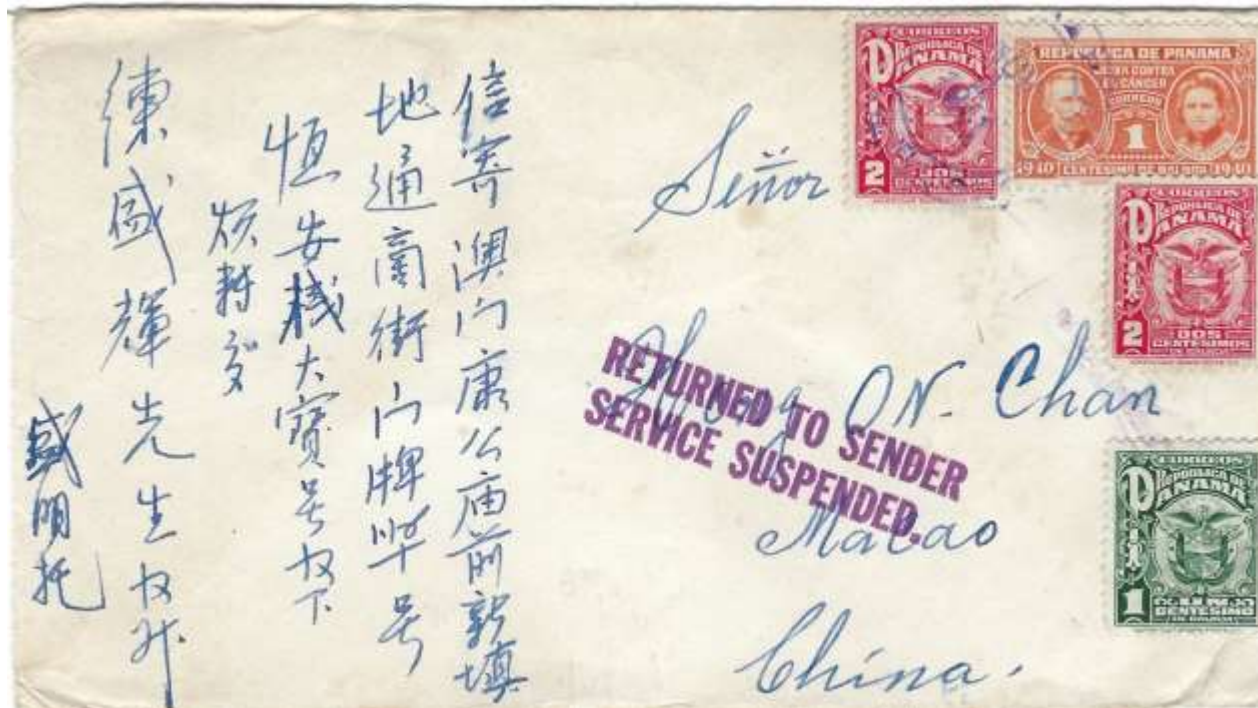 信寄澳门康公庙前新填
地通商街门牌号
恒安棧大寶号收下
煩轉交
盛輝先生收升
盛明托
Señor
ON. Chan
Macao
China.
RETURNED TO SENDER
SERVICE SUSPENDED.
CORREOS
REPUBLICA DE
PANAMA
2
DOS
CENTESIMOS
REPUBLICA DE PANAMA
LUCHA CONTRA
EL CANCER
CORREOS
1
1940 CENTESIMO DE BALBOA 1940
CORREOS
REPUBLICA DE
PANAMA
2
DOS
CENTESIMOS
CORREOS
REPUBLICA DE
PANAMA
1
UN
CENTESIMO